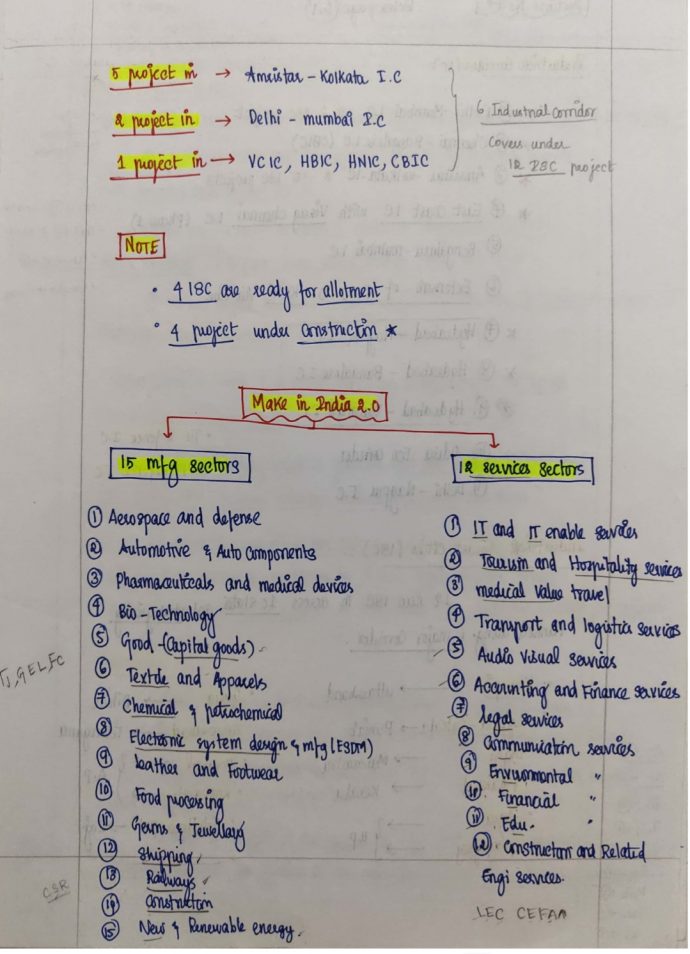 5 project in → Amristar - Kolkata I.C
2 project in → Delhi - mumbai I.C
1 project in → VCIC, HBIC, HNIC, CBIC
6 Industrial corridor
covers under
12 ISC project
NOTE
• 4 ISC are ready for allotment
• 4 project under construction *
Make in India 2.0
15 mfg sectors
① Aerospace and defense
② Automotive & Auto Components
③ Pharmaceuticals and medical devices
④ Bio-Technology
⑤ Good - (Capital goods)
⑥ Textile and Apparels
⑦ Chemical & petrochemical
⑧ Electronic system design & mfg (ESDM)
⑨ Leather and Footwear
⑩ Food processing
⑪ Germs & Jewellary
⑫ Shipping
⑬ Railways
⑭ construction
⑮ New & Renewable energy.
CSR
12 services sectors
① IT and IT enable services
② Tourism and Hospitality services
③ medical value travel
④ Transport and logistics services
⑤ Audio visual services
⑥ Accounting and Finance services
⑦ legal services
⑧ Communication services
⑨ Environmental "
⑩ Financial "
⑪ Edu. "
⑫ construction and Related
Engi services.
LEC CEFAM